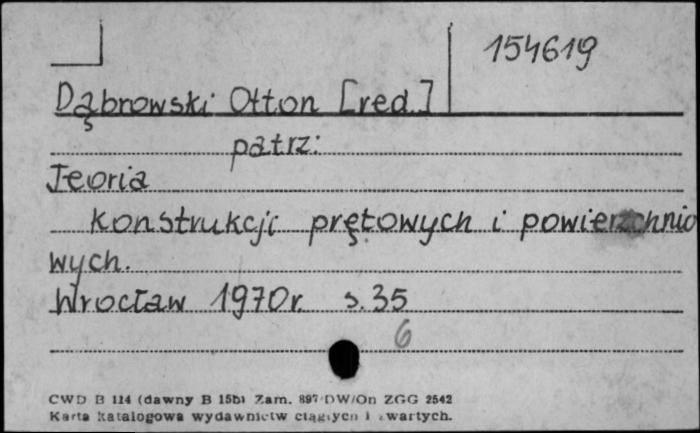 154619
Dąbrowski Otton [red.]
patrz:
Teoria
konstrukcji prętowych i powierzchnio
wych.
Wrocław 1970r. s. 35
6
CWD B 114 (dawny B 15b) Zam. 897/DW/On ZGG 2542
Karta katalogowa wydawnictw ciągłych i zwartych.